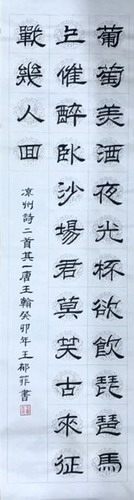 葡萄美酒夜光杯欲飲琵琶馬
上催醉卧沙場君莫笑古來征
戰幾人回
凉州詩二首其一唐王翰癸卯年王郁菲書